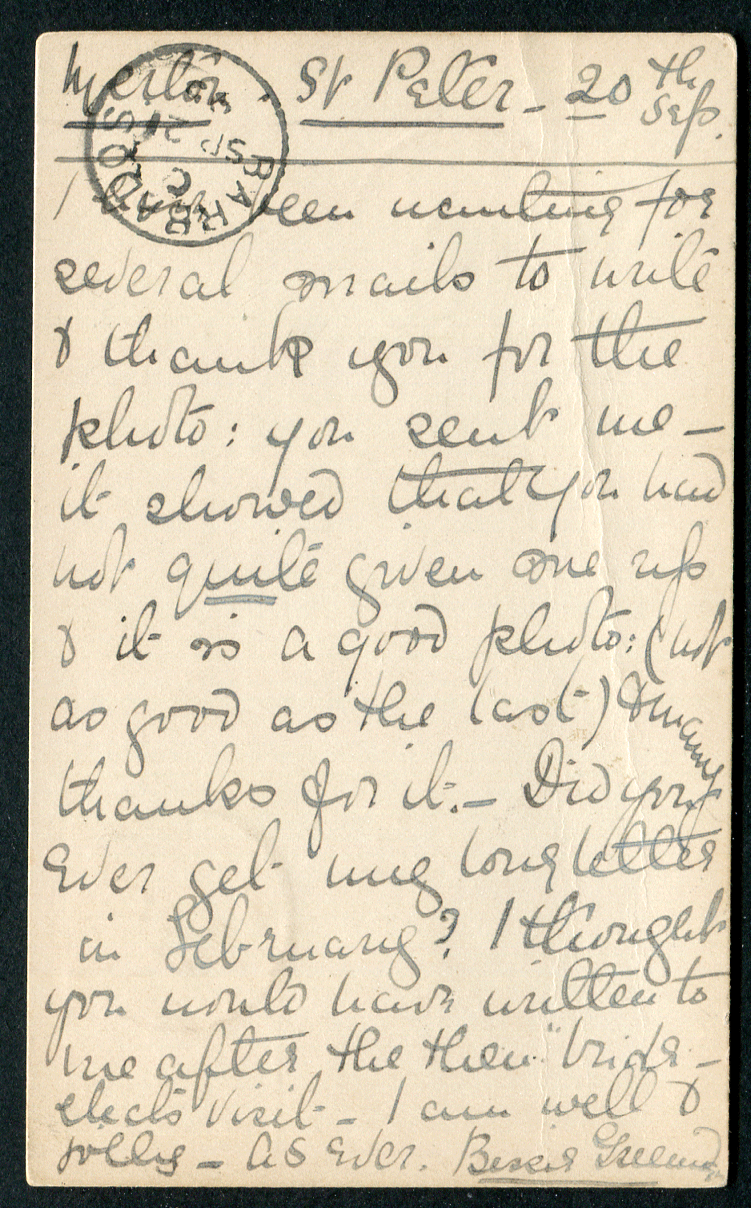 Merton. St Peter - 20th Sep.
BARBADOS
C
SP 21
I have been wanting for
several mails to write
& thank you for the
photo: you sent me -
it showed that you had
not quite given me up
& it is a good photo: (not
as good as the last) & many
thanks for it. - Did you
ever get my long letter
in February? I thought
you would have written to
me after the then "bride-
elect's visit - I am well &
jolly - as ever. Bessie